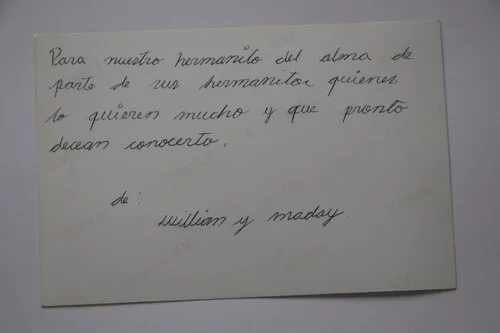 Para nuestro hermanito del alma de
parte de sus hermanitos quienes
lo quieren mucho y que pronto
decean conocerto.
de:
William y maday